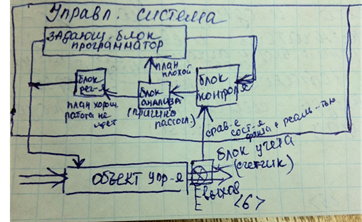 Управл. система
задающ. блок
программатор
план
плохой
блок
рег-я
блок
анализа
(причина
расстогл.)
блок
контроля
план хорош
работа не
идет
срав-е
сост-я
плана с реаль-тью
объект упр-я
блок учета
(счетчик)
выход
<6>